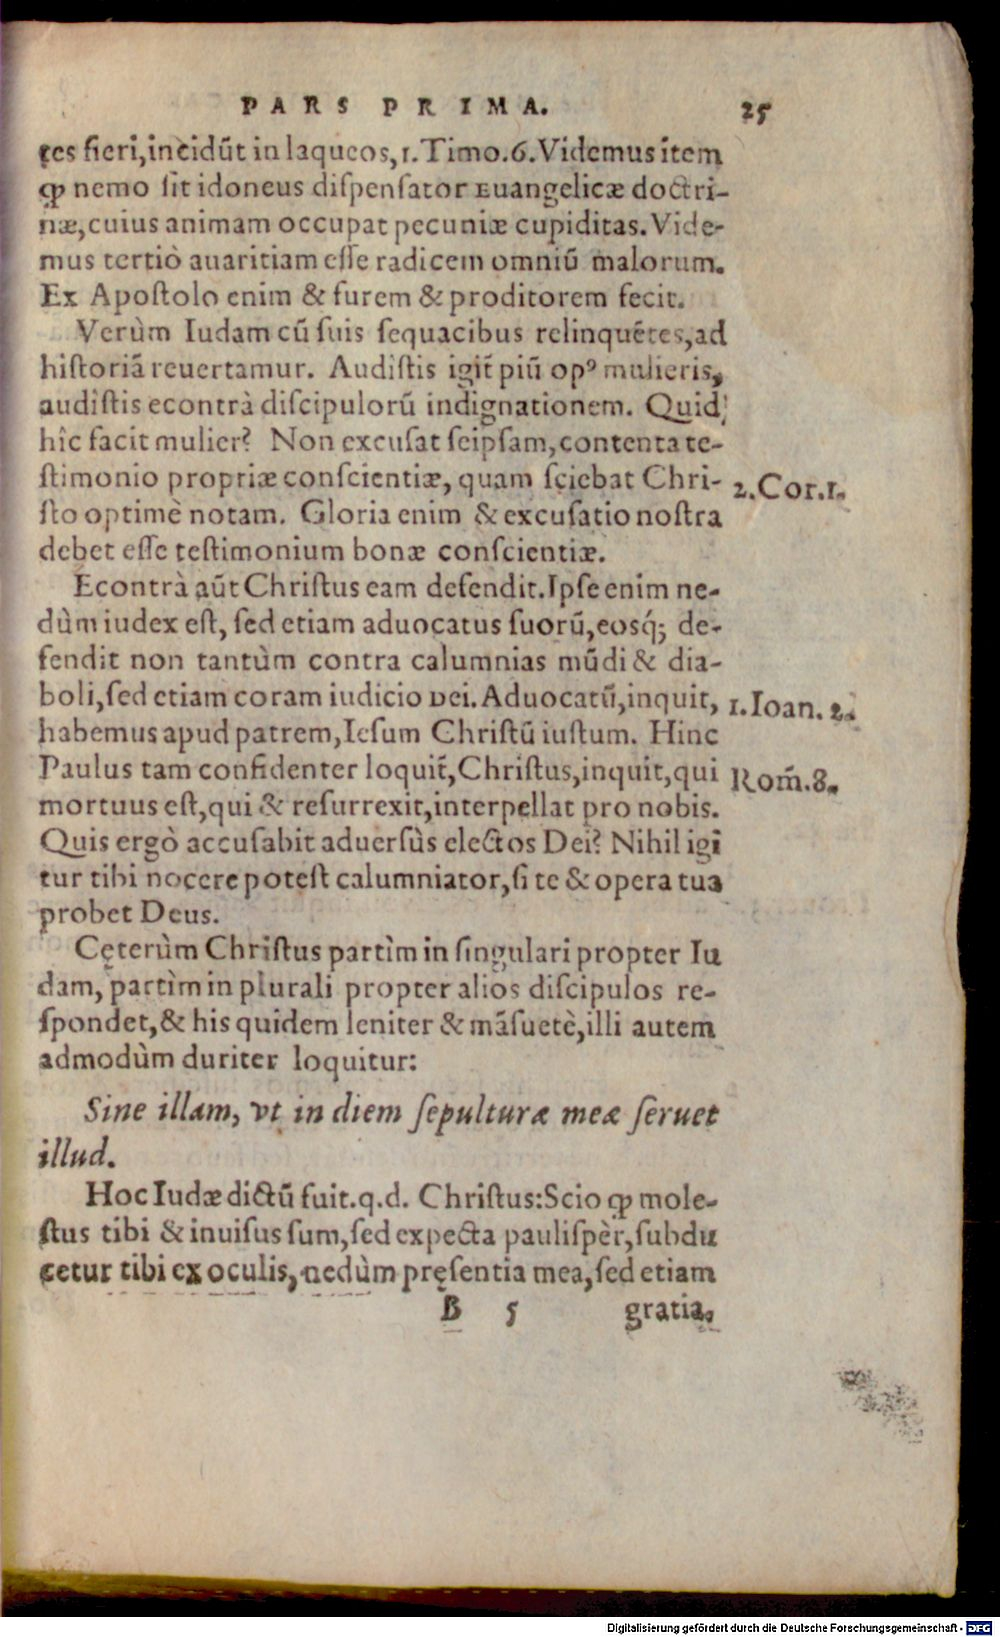 PARS PRIMA. 25
tes fieri, incidũt in laqueos, 1. Timo. 6. Videmus item
ꝙ nemo ſit idoneus diſpenſator Euangelicæ doctri-
næ, cuius animam occupat pecuniæ cupiditas. Vide-
mus tertiò auaritiam eſſe radicem omniũ malorum.
Ex Apoſtolo enim & furem & proditorem fecit.
Verùm Iudam cũ ſuis ſequacibus relinquẽtes, ad
hiſtoriã reuertamur. Audiſtis igit̃ piũ opꝰ mulieris,
audiſtis econtrà diſcipulorũ indignationem. Quid
hîc facit mulier? Non excuſat ſeipſam, contenta te-
ſtimonio propriæ conſcientiæ, quam ſciebat Chri-
2. Cor. 1.
ſto optimè notam. Gloria enim & excuſatio noſtra
debet eſſe teſtimonium bonæ conſcientiæ.
Econtrà aũt Chriſtus eam defendit. Ipſe enim ne-
dùm iudex eſt, ſed etiam aduocatus ſuorũ, eosq́; de-
fendit non tantùm contra calumnias mũdi & dia-
boli, ſed etiam coram iudicio Dei. Aduocatũ, inquit,
1. Ioan. 2.
habemus apud patrem, Ieſum Chriſtũ iuſtum. Hinc
Paulus tam confidenter loquit̃, Chriſtus, inquit, qui
Rom̃. 8.
mortuus eſt, qui & reſurrexit, interpellat pro nobis.
Quis ergò accuſabit aduerſùs electos Dei? Nihil igi
tur tibi nocere poteſt calumniator, ſi te & opera tua
probet Deus.
Cęterùm Chriſtus partìm in ſingulari propter Iu
dam, partìm in plurali propter alios diſcipulos re-
ſpondet, & his quidem leniter & mãſuetè, illi autem
admodùm duriter loquitur:
Sine illam, vt in diem ſepulturæ meæ ſeruet
illud.
Hoc Iudæ dictũ fuit. q.d. Chriſtus: Scio ꝙ mole-
ſtus tibi & inuiſus ſum, ſed expecta pauliſpèr, ſubdu
cetur tibi ex oculis, nedùm pręſentia mea, ſed etiam
B 5 gratia.
Digitalisierung gefördert durch die Deutsche Forschungsgemeinschaft - DFG